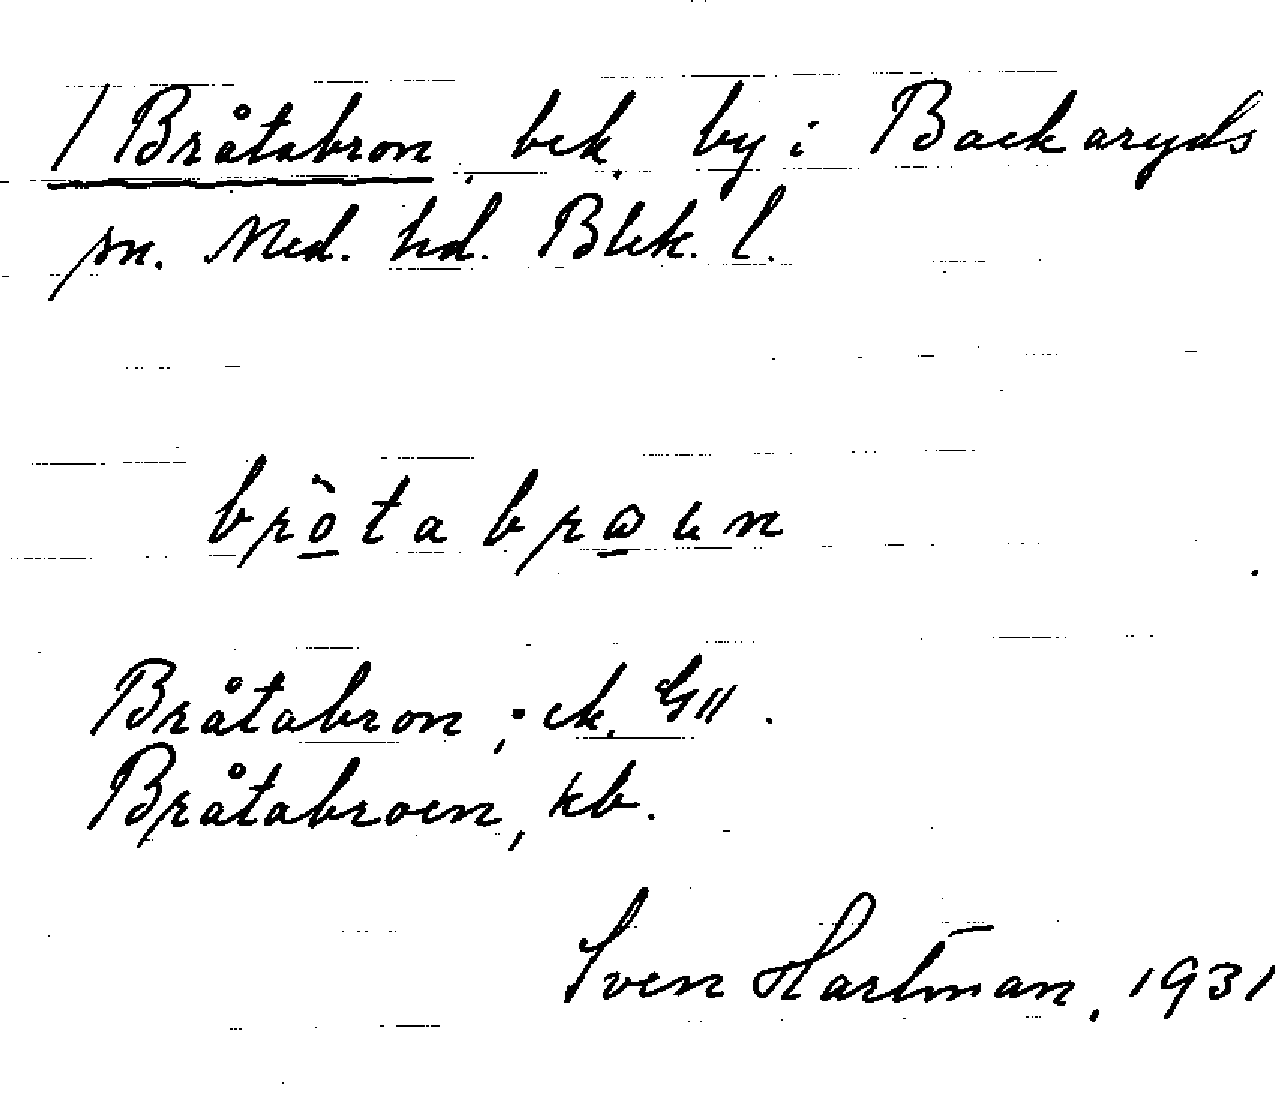 / Bråtabron, bek. by i Backaryds
sn. Med. hd. Blek. l.
bròtabroun
Bråtabron; ek. G11.
Bråtabroen, kb.
Sven Hartman, 1931